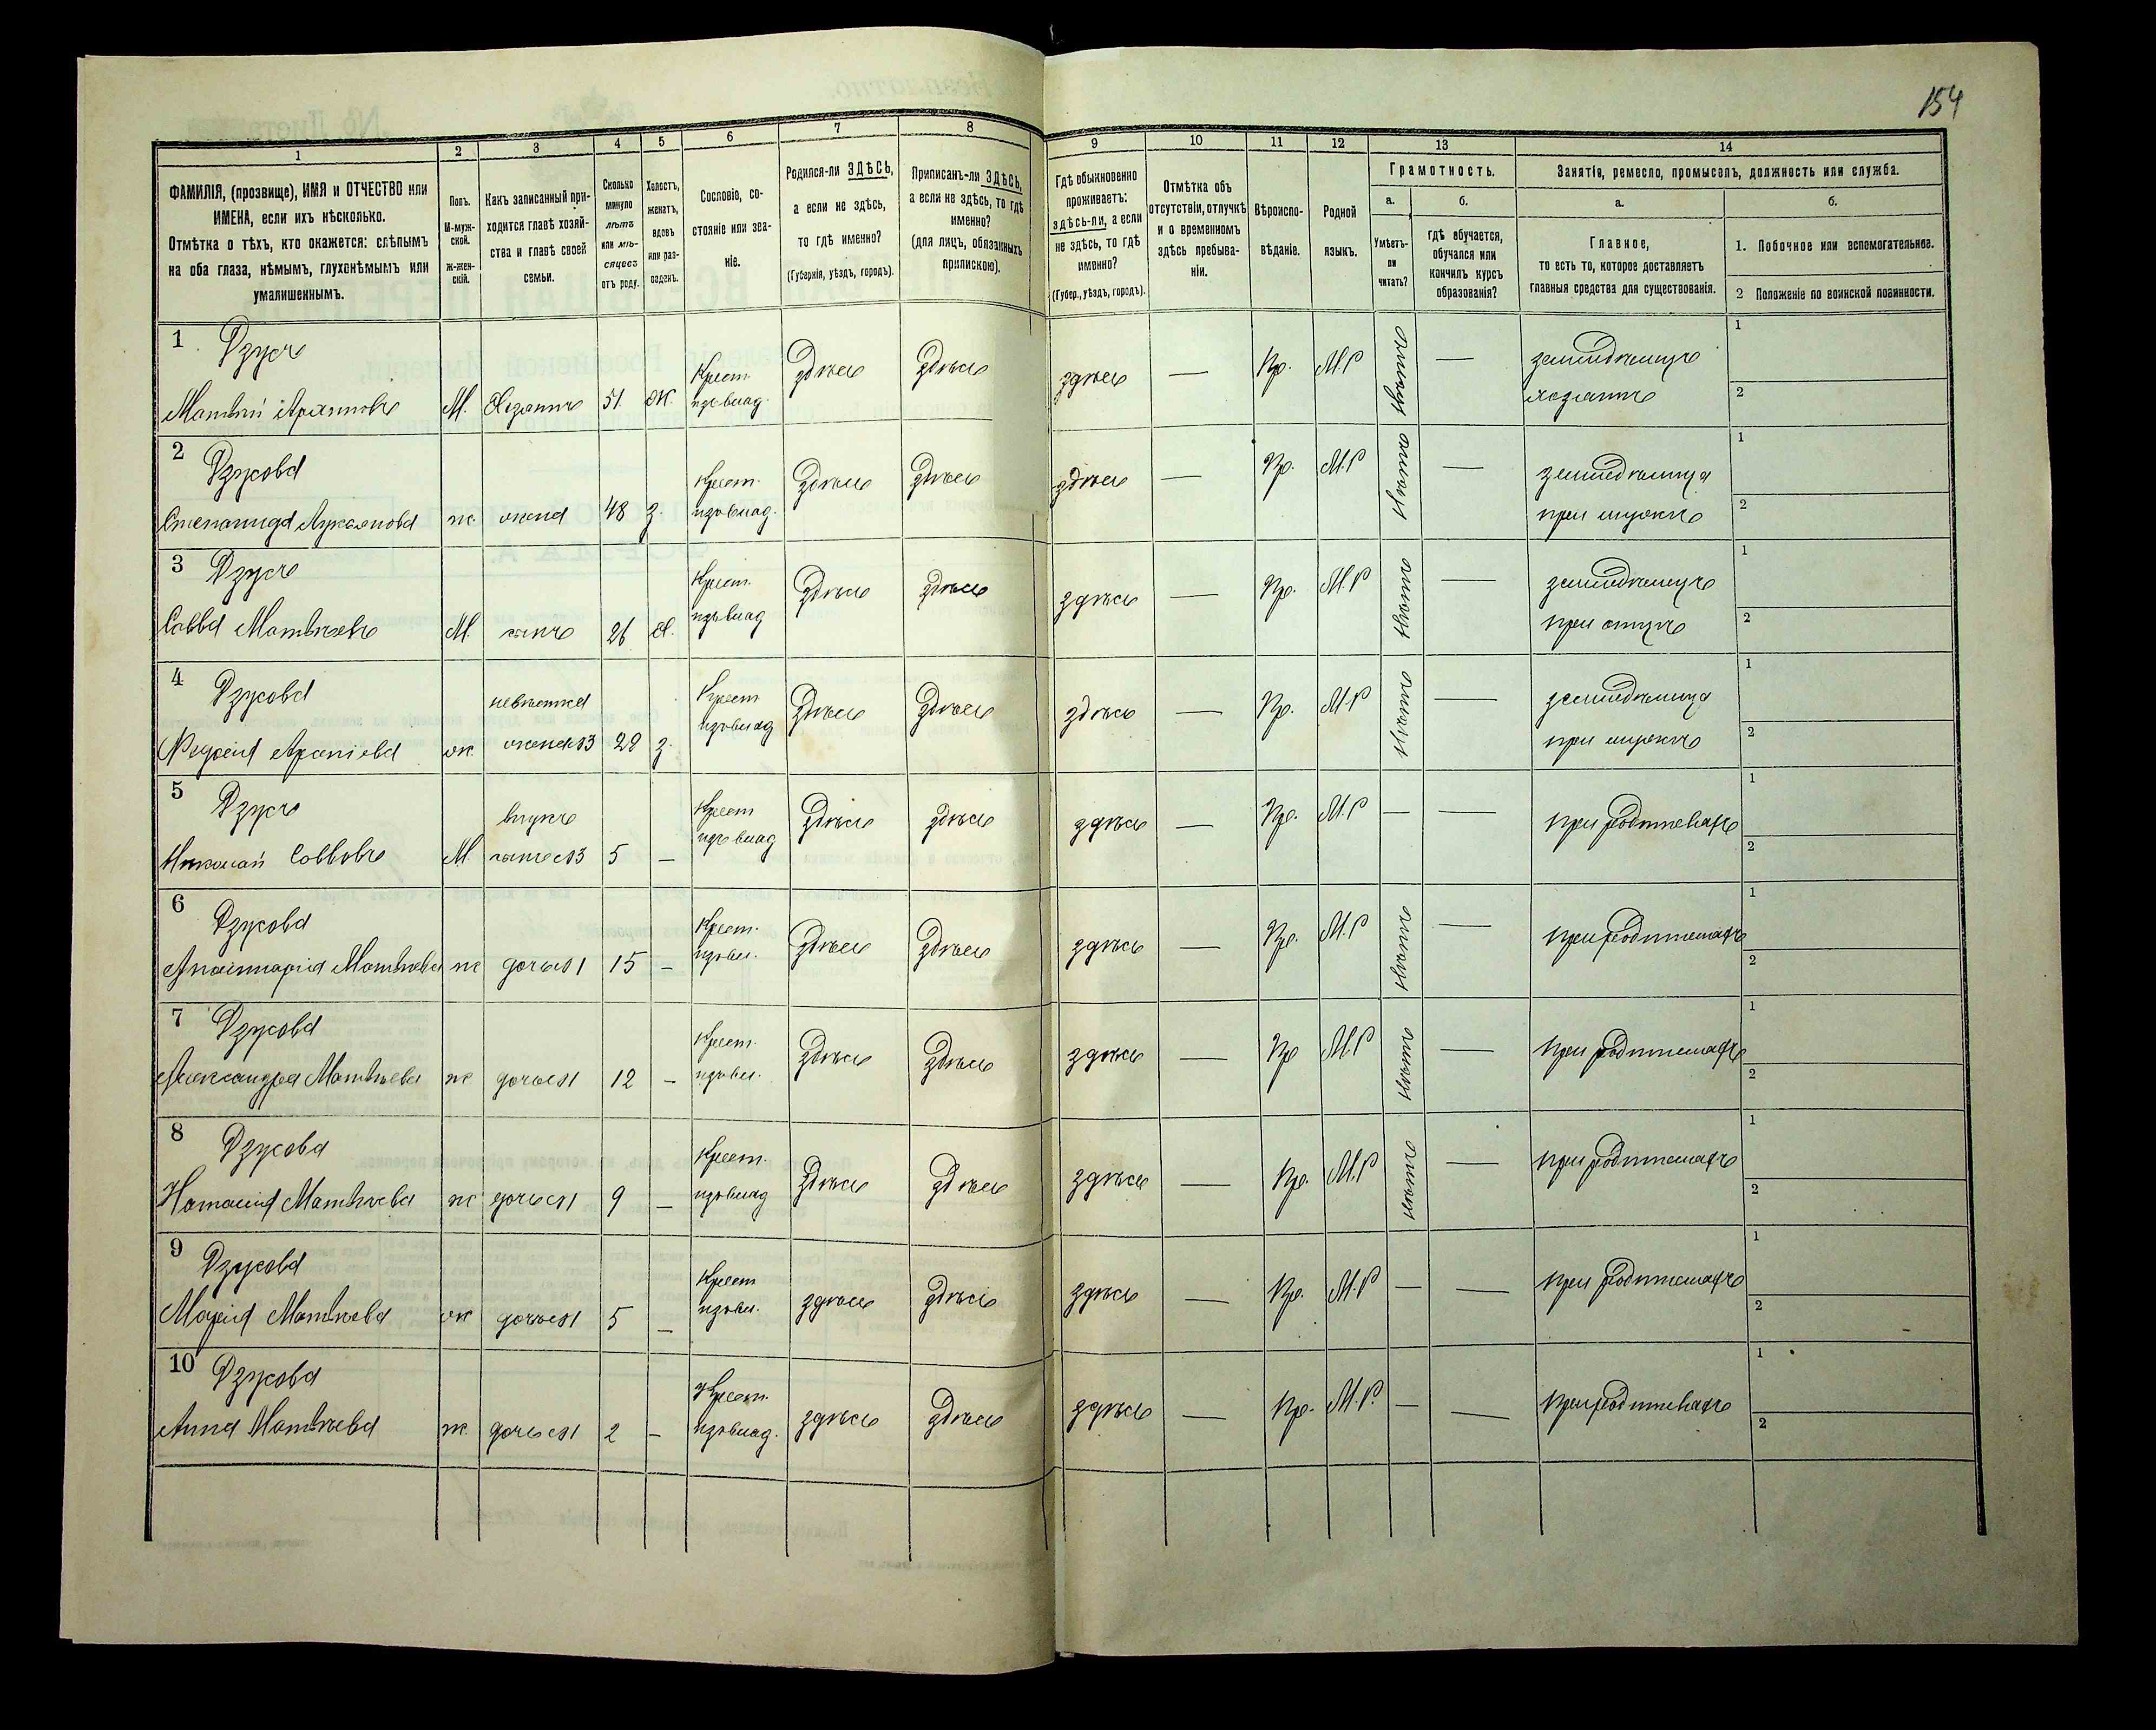 154
1
2
3
4
5
6
7
8
9
10
11
12
13
14
ФАМИЛІЯ, (прозвище), ИМЯ и ОТЧЕСТВО или
ИМЕНА, если ихъ нѣсколько.
Отмѣтка о тѣхъ, кто окажется: слѣпымъ
на оба глаза, нѣмымъ, глухонѣмымъ или
умалишеннымъ.
Полъ.
М-муж-
ской.
Ж-жен-
скій.
Какъ записанный при-
ходится главѣ хозяй-
ства и главѣ своей
семьи.
Сколько
минуло
лѣтъ
или мѣ-
сяцевъ
отъ роду.
Холостъ,
женатъ,
вдовъ
или раз-
веденъ.
Сословіе, со-
стояніе или зва-
ніе.
Родился-ли ЗДѢСЬ,
а если не здѣсь,
то гдѣ именно?
(Губернія, уѣздъ, городъ).
Приписанъ-ли ЗДѢСЬ,
а если не здѣсь, то гдѣ
именно?
(для лицъ, обязанныхъ
припискою).
Гдѣ обыкновенно
проживаетъ:
здѣсь-ли, а если
не здѣсь, то гдѣ
именно?
(Губер., уѣздъ, городъ).
Отмѣтка объ
отсутствіи, отлучкѣ
и о временномъ
здѣсь пребыва-
ніи.
Вѣроиспо-
вѣданіе.
Родной
языкъ.
Грамотность.
а.
Умѣетъ-
ли
читать?
б.
гдѣ обучается,
обучался или
кончилъ курсъ
образованія?
Занятіе, ремесло, промыселъ, должность или служба.
а.
Главное,
то есть то, которое доставляетъ
главныя средства для существованія.
б.
1. Побочное или вспомогательное.
2 Положеніе по воинской повинности.
1 Дзусъ
Матвѣй М. Хозяинъ 51 ж. Крест. изъ влад. здѣсь здѣсь здѣсь — Пр. М.Р — земледѣлецъ хозяинъ 1 2
2 Дзусова
Степанида Лукьянова ж. жена 48 з. Крест. изъ влад. здѣсь здѣсь здѣсь — Пр. М.Р нѣтъ — земледѣлица при мужѣ 1 2
3 Дзусъ
Савва Матвѣевъ М. сынъ 26 ж. Крест. изъ влад здѣсь здѣсь здѣсь — Пр. М.Р нѣтъ — земледѣлецъ при отцѣ 1 2
4 Дзусова
Федосія ж. невѣстка жена 3 з. Крест изъ влад здѣсь здѣсь здѣсь — Пр. М.Р нѣтъ — земледѣлица при мужѣ 1 2
5 Дзусъ
Николай Саввовъ М внукъ сынъ 3 5 — Крест изъ влад здѣсь здѣсь здѣсь — Пр. М.Р — — при родителяхъ 1 2
6 Дзусова
Матвѣева ж дочь 1 15 — Крест. изъ вл. здѣсь здѣсь здѣсь — Пр. М.Р нѣтъ — при родителяхъ 1 2
7 Дзусова
Александра Матвѣева ж дочь 1 12 — Крест. изъ вл. здѣсь здѣсь здѣсь — Пр М.Р нѣтъ — при родителяхъ 1 2
8 Дзусова
Наталія Матвѣева ж дочь 1 9 — Крест. изъ влад здѣсь здѣсь здѣсь — Пр. М.Р нѣтъ — при родителяхъ 1 2
9 Дзусова
Марія Матвѣева ж дочь 1 5 — Крест изъ вл. здѣсь здѣсь здѣсь — Пр. М.Р — — при родителяхъ 1 2
10 Дзусова
Анна Матвѣева ж. дочь 1 2 — Крест. изъ влад. здѣсь здѣсь здѣсь — Пр. М.Р. — — при родителяхъ 1 2